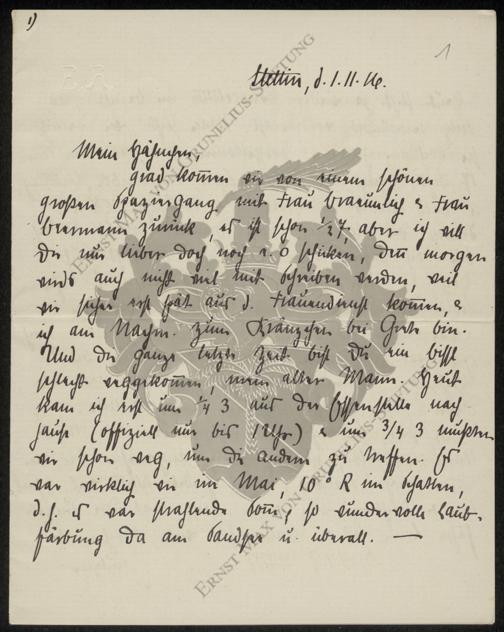 1)
1
Stettin, d. 1. 11. 16.
Mein Hähnchen,
grad kommen wir von einem schönen
großen Spaziergang mit Frau Braeunlich & Frau
Biermann zurück, es ist schon 1/2 7, aber ich will
Dir nur lieber doch noch schicken, denn morgen
wirds auch nicht viel mit schreiben werden, weil
wir sicher erst spät aus d. Frauendienst kommen, &
ich am Nachm. zum Kränzchen bei Grete bin.
Und die ganze letzte Zeit bist Du ein bissl
schlecht weggekommen, mein alter Mann. Heut
kam ich erst um 1/4 3 aus der nach
Hause (offiziell nur bis 1 Uhr) & um 3/4 3 mußten
wir schon weg, um die andern zu treffen. Es
war wirklich wie im Mai, 10° R im Schatten,
d. h. es war strahlende Sonne, so wundervolle Laub-
färbung da am Sandsee u. überall. —
ERNST MAX VON GRUNELIUS-STIFTUNG
ERNST MAX VON GRUNELIUS-STIFTUNG